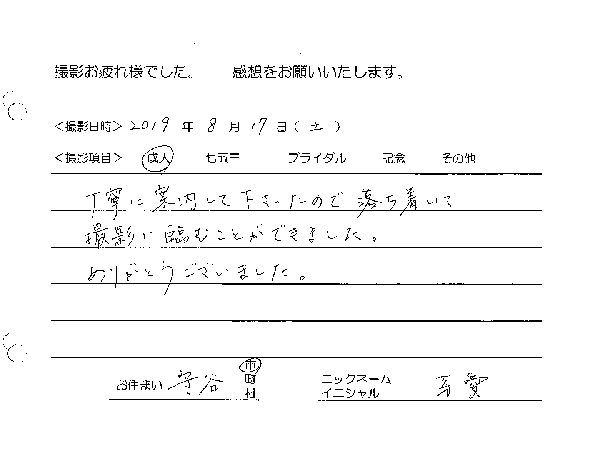 撮影お疲れ様でした。 感想をお願いいたします。
<撮影日時> 2019 年 8 月 17 日(土)
<撮影項目> 成人 七五三 ブライダル 記念 その他
丁寧に案内して下さったので落ち着いて
撮影に臨むことができました。
ありがとうございました。
お住まい 守谷 市 町 村 ニックネーム イニシャル